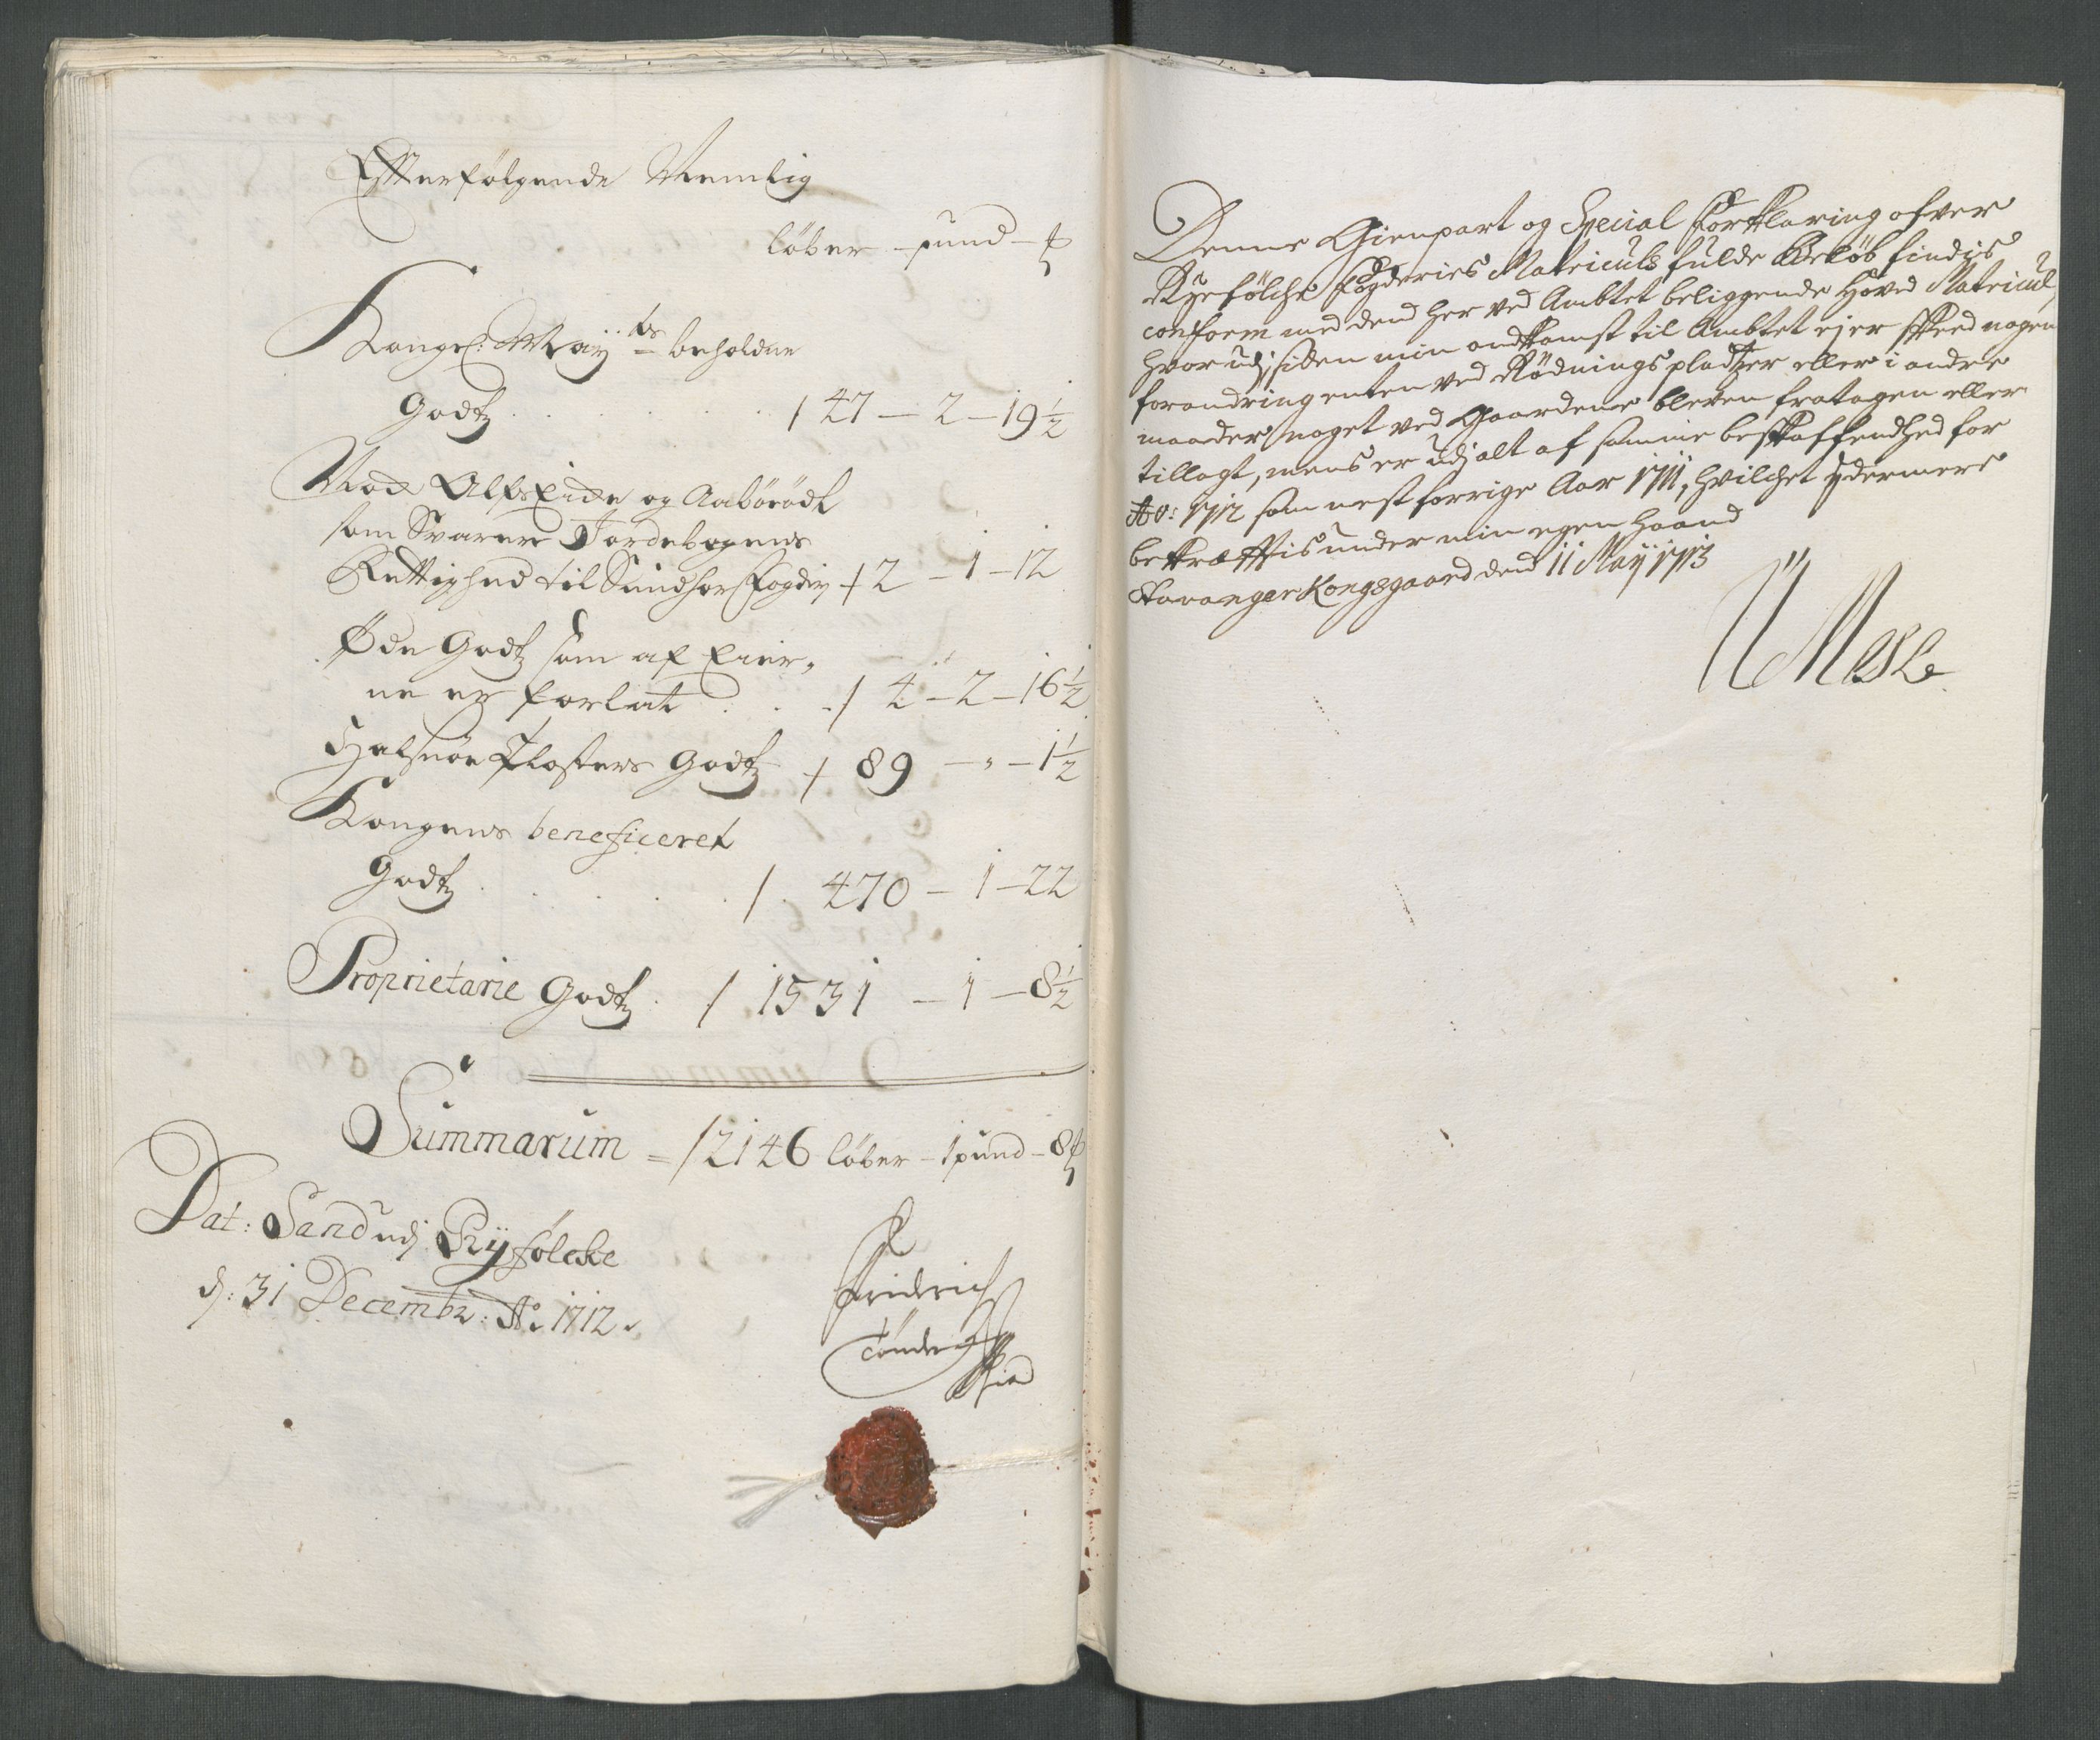 Efterfølgende Nemlig
løber - pund - ℔
Kongel: Mayts beholdne
Godtz . . . . . . / 47 - 2 - 19½
Nock Alfseide og Aabørødt
som Svarer Jordebogens
Rettighed til Sundhorfogdry / 2 - 1 - 12
Øde Godtz som af Eier,
ne er forlat . . . / 4 - 2 - 16½
Halsnöe Closters Godtz / 89 - „ - 1½
Kongens beneficeret
Godtz . . . . . / 470 - 1 - 22
Proprietarie Godtz . / 1531 - 1 - 8½
Summarum = / 2146 løber - 1 pund - 8 ℔
Dat: Sand udj Ryfølcke
d: 31 Decembr: Ao 1712.
Fridrich
Tønder
Denne Gienpart og Special forklaring ofver
Ryefölche fogderies Matriculs fulde beløb findis
conform med dend her ved Ambtet beliggende Hoved Matricul,
hvor udj siden min andkomst til Ambtet ej er skeed nogen
forandring enten ved Rødnings pladtzer eller i andre
maader noget ved Gaardene bleven fratagen eller
tillagt, mens er udj alt af samme beskaffendhed for
Ao: 1712 som nest forrige Aar 1711, hvilchet ydermere
bekræfftis under min egen haand
Stavanger Kongsgaard dend 11 May 1713